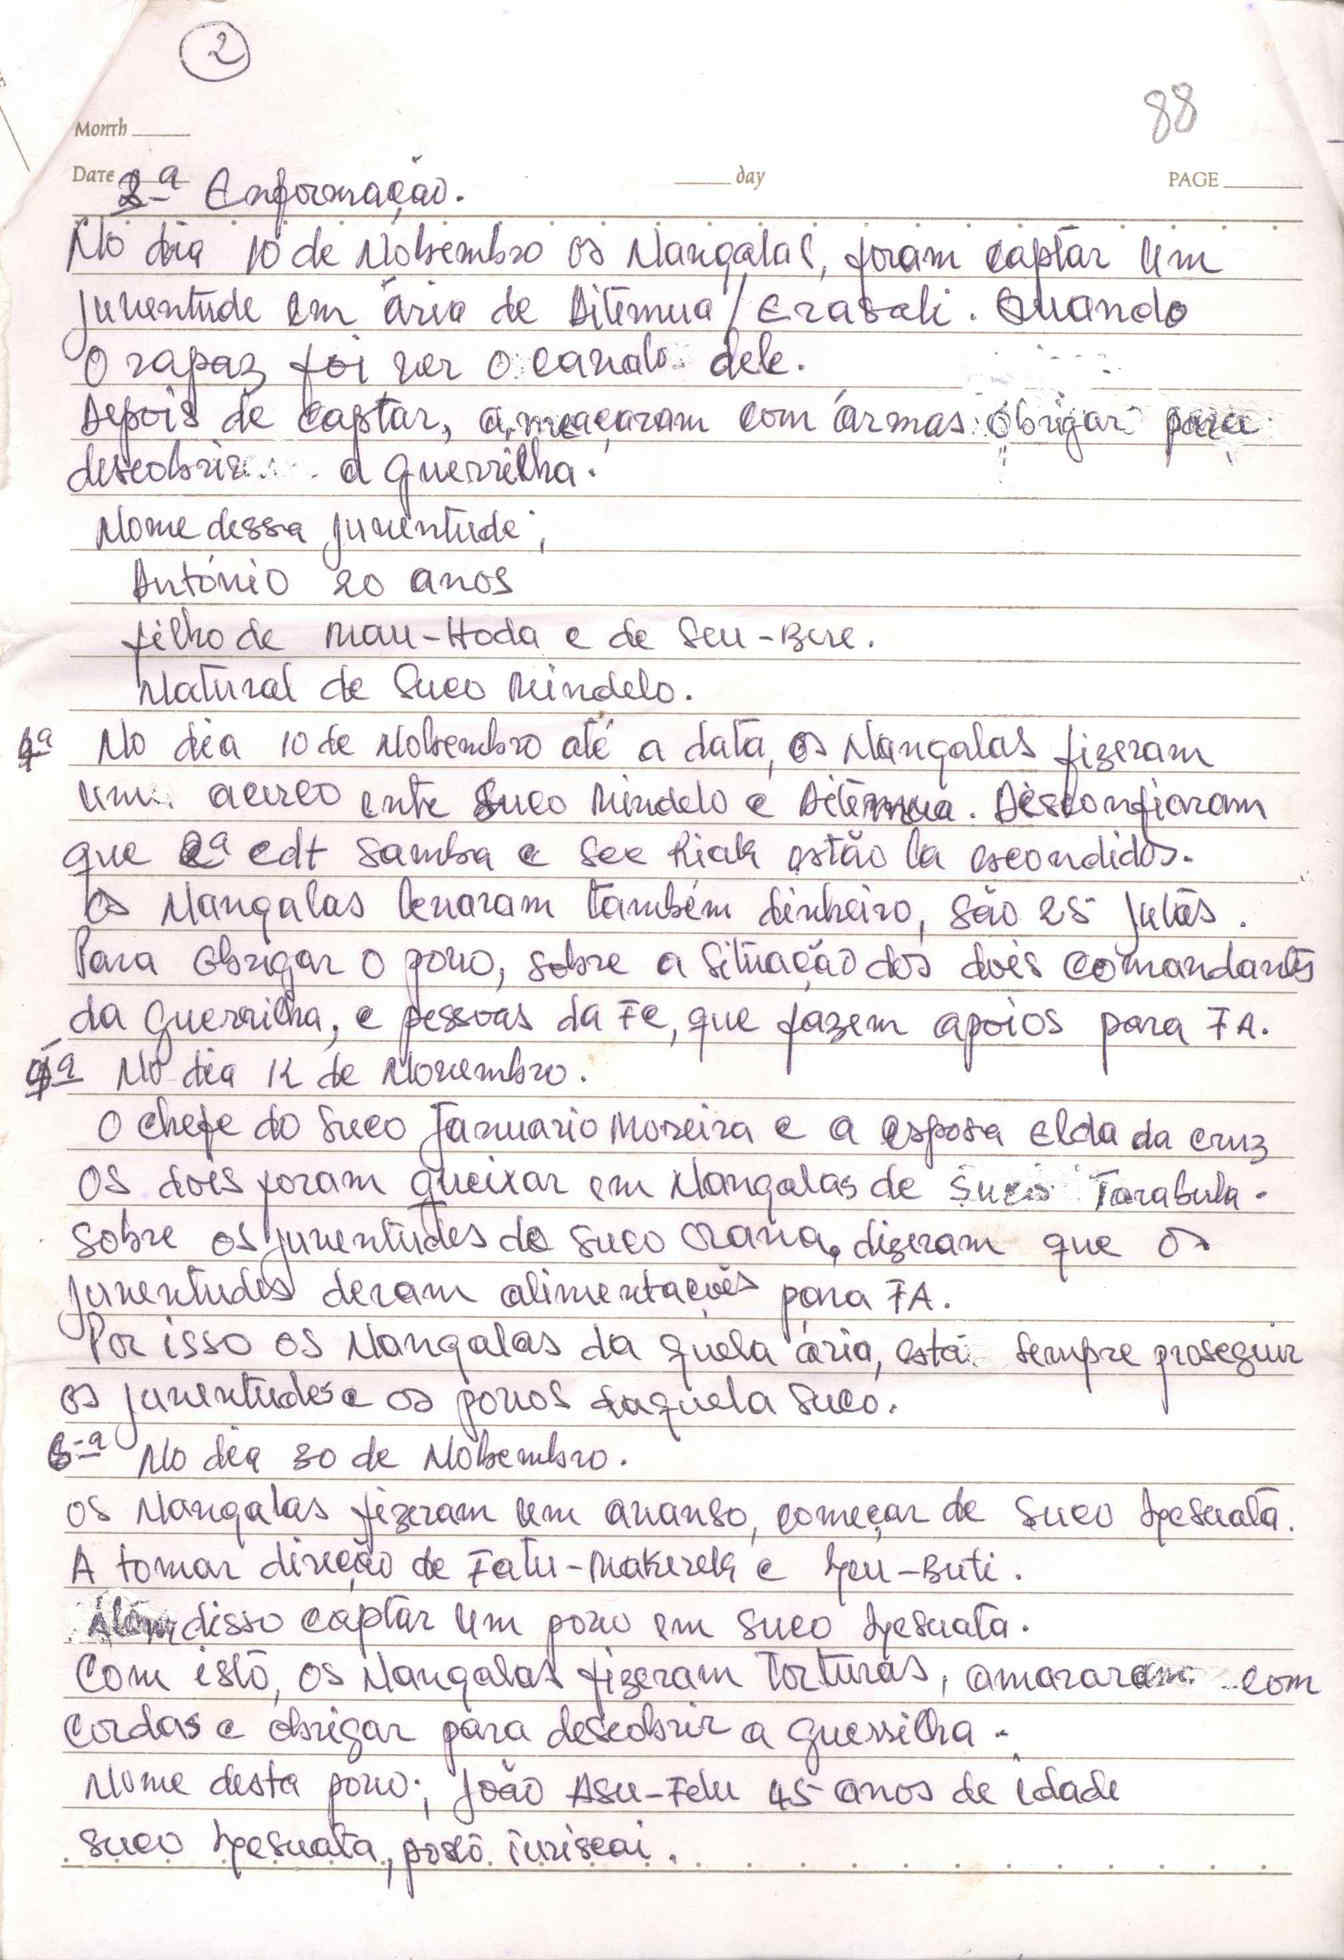 2
88
Month
Date day PAGE
3ª Enformação.
No dia 10 de Nobembro os Nangalas, foram captar um
juventude em ária de Ditémua / Erasoli. Quando
O rapaz foi ver o cavalo dele.
Depois de captar, ameaçaram com ármas óbrigar para
descobrir a guerrilha.
Nome dessa juventude;
António 20 anos
filho de Mau-Hoda e de Seu-Bere.
Natural de Suco Mindelo.
4ª No dia 10 de Nobembro até a data, os Nangalas fizeram
um acerco ente Suco Mindelo e Ditémua. Desconfiaram
que 2ª cdt Samba e See Riak estão la escondidos.
Os Nangalas levaram também dinheiro, são 25 jutás.
Para obrigar o povo, sobre a situação dos dois comandantes
da guerrilha, e pessoas da Fe, que fazem apoios para FA.
5ª No dia 12 de Novembro.
O chefe do Suco Januario Moreira e a esposa Elda da Cruz
Os dois foram queixar em Nangalas de Suco Tarabula.
Sobre os juventudes do Suco Orana, dizeram que os
juventudes deram alimentações para FA.
Por isso os Nangalas da quela ária, está sempre proseguir
os juventudes e os povos daquela Suco.
6ª No dia 30 de Nobembro.
Os Nangalas fizeram um avanso, começar de Suco
A tomar direção de Fatu-Makerek e
Além disso captar um povo em Suco
Com istó, os Nangalas fizeram torturas, amararam com
cordas e óbrigar para descobrir a guerrilha.
Nome desta povo; João Asu-Felu 45 anos de idade
Suco posto Turiscai.